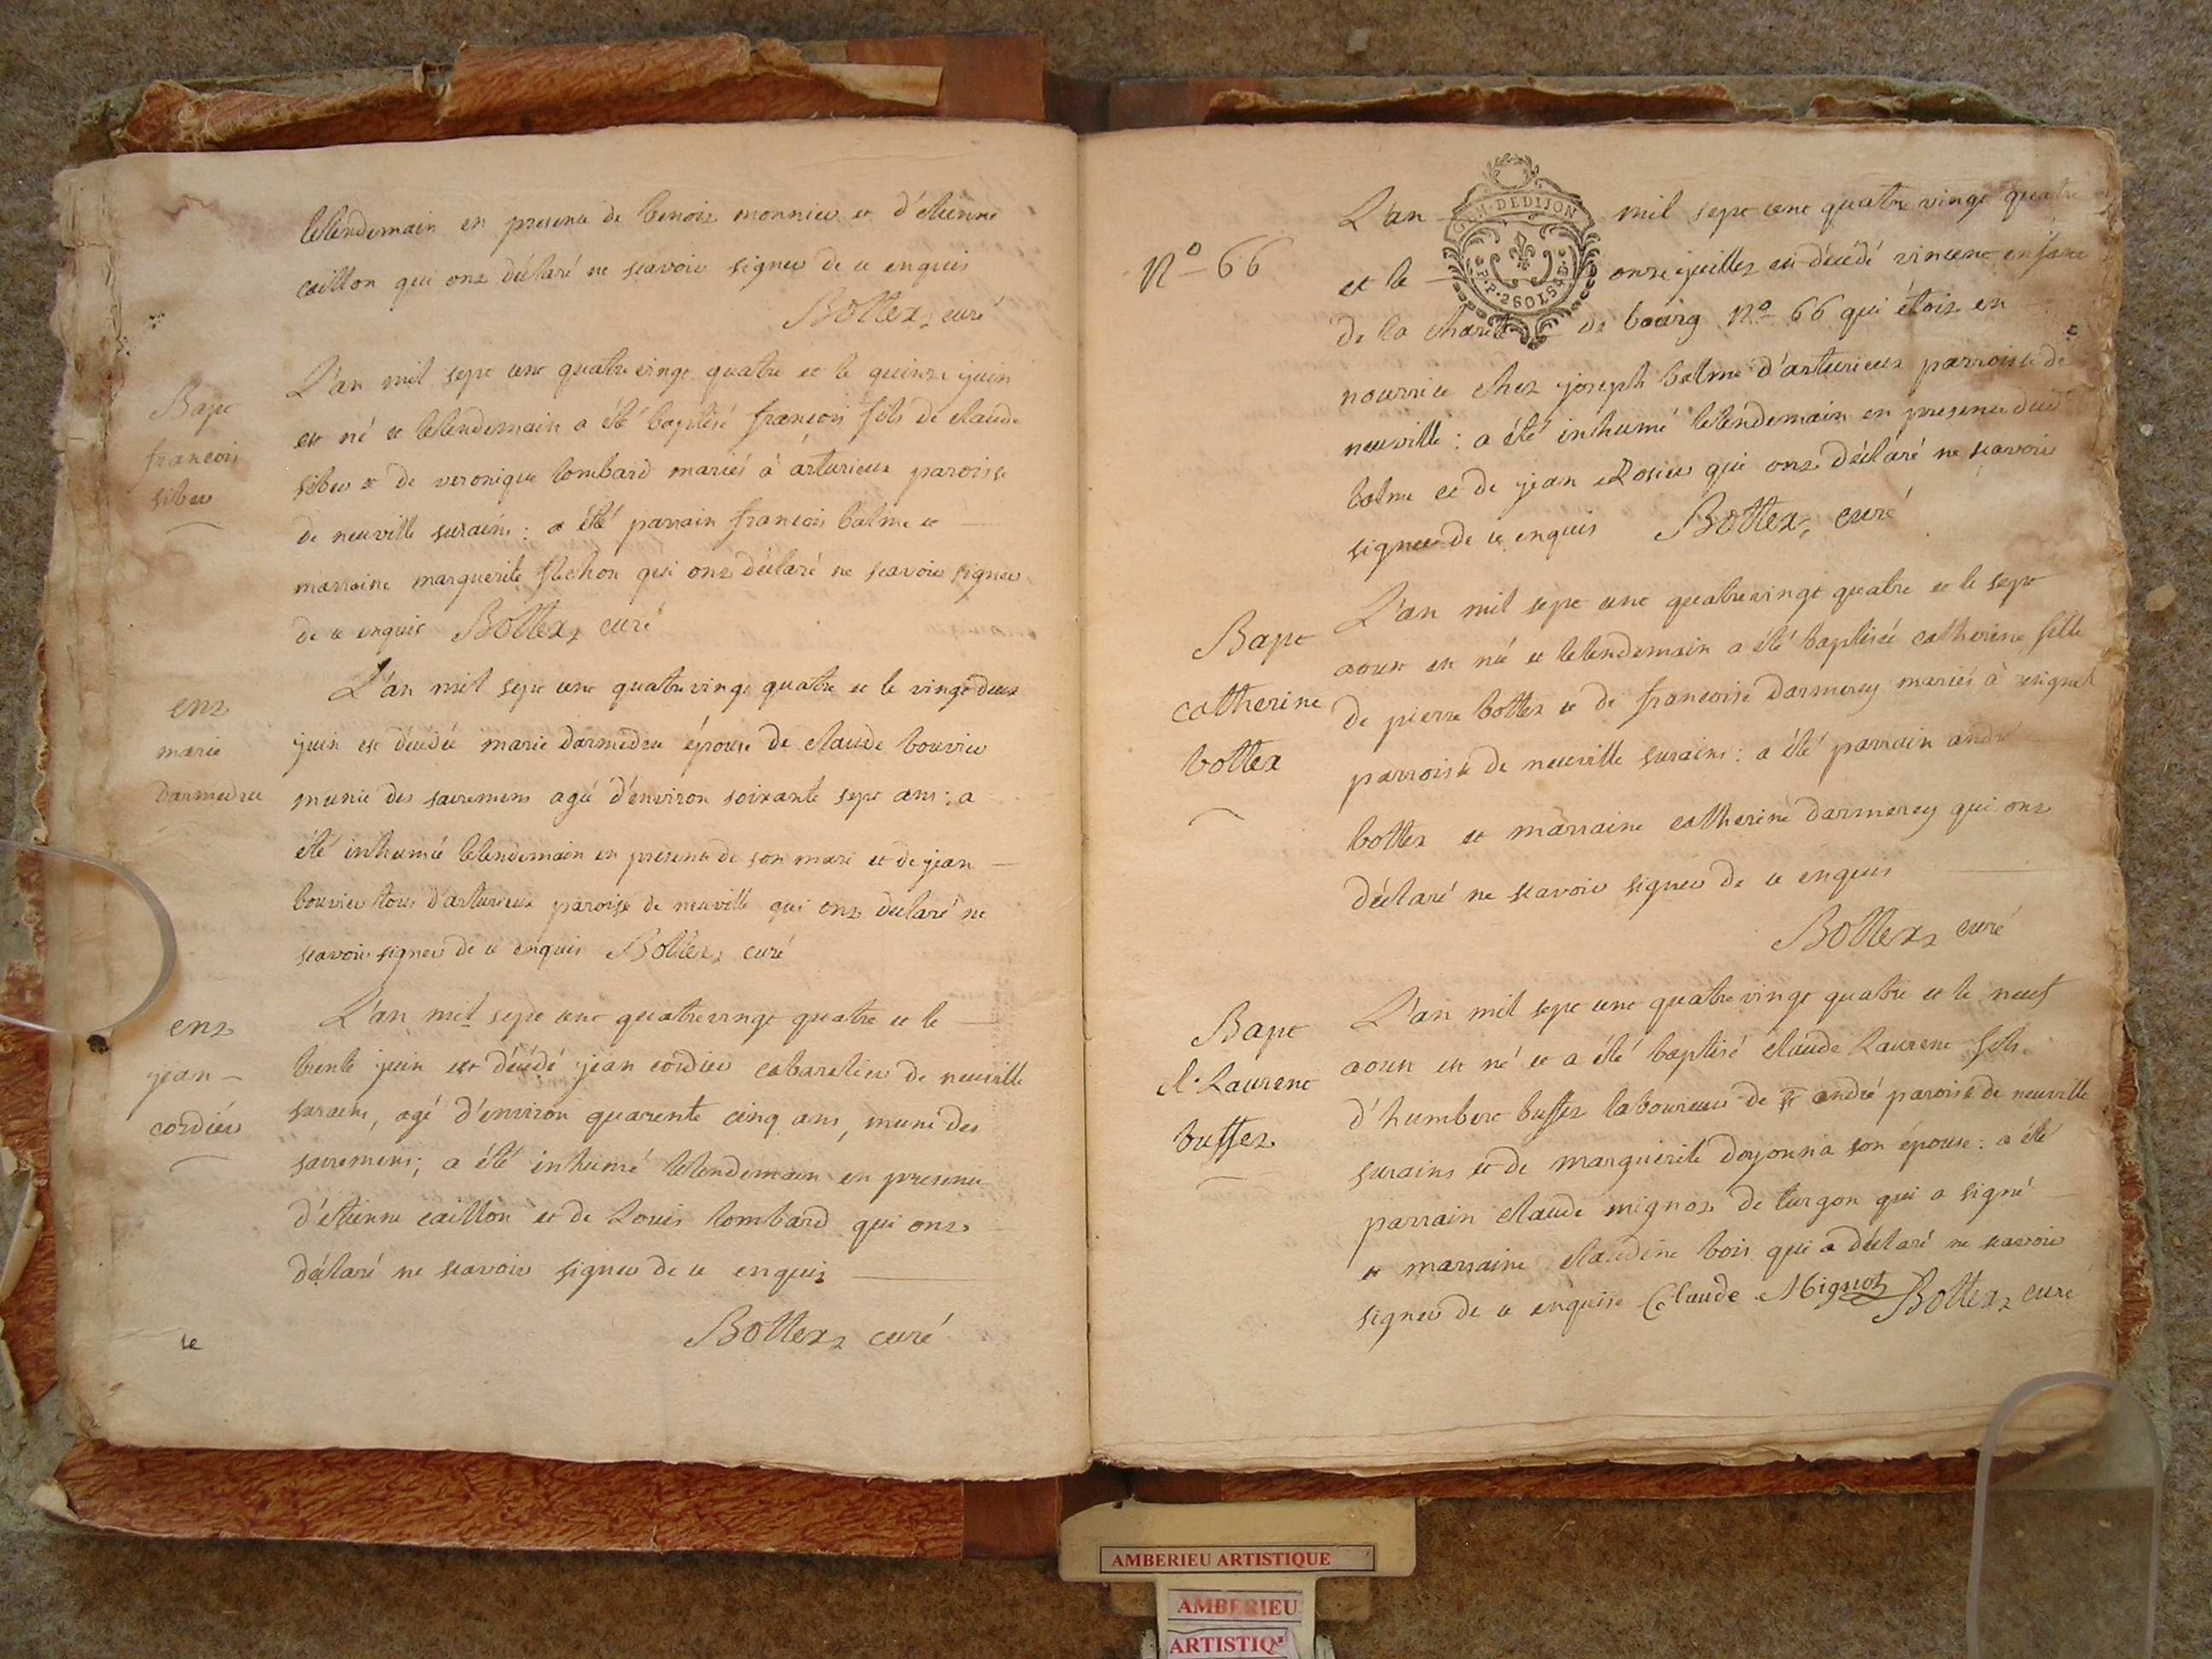 lelendemain en presence de benoit monnier et d'étienne
caillon qui ont déclaré ne scavoir signer de ce enquis
Bottex, curé
Bapt
francois
siber
L'an mil sept cent quatre vingt quatre et le quinze juin
est né et lelendemain a été baptisé francois fils de claude
siber et de veronique lombard mariés à arturieux paroisse
de neuville surains : a été parrain francois balme et
marraine marguerite qui ont déclaré ne scavoir signer
de ce enquis Bottex, curé
ent
marie
darmedru
L'an mil sept cent quatrevingt quatre et le vingt deux
juin est décédée marie darmedru épouse de claude bouvier
munie des sacremens agée d'environ soixante sept ans : a
été inhumée lelendemain en presence de son mari et de jean
bouvier tous d'arturieux paroisse de neuville qui ont declaré ne
scavoir signer de ce enquis Bottex, curé
ent
jean
cordier
L'an mil sept cent quatrevingt quatre et le
trente juin est décédé jean cordier cabaretier de neuville
surains, agé d'environ quarente cinq ans, muni des
sacremens; a été inhumé lelendemain en presence
d'étienne caillon et de Louis lombard qui ont
déclaré ne scavoir signer de ce enquis
Bottex, curé
le
N° 66
L'an mil sept cent quatre vingt quatre
et le onze juillet est décédé vincent enfant
GEN. DE DIJON
P.P. 2 SOLS
de la charité de bourg N° 66 qui étoit en
nourrice chez joseph balme d'arturieux parroisse de
neuville : a été inhumé lelendemain en presence dud
balme et de jean Rosier qui ont déclaré ne scavoir
signer de ce enquis Bottex, curé
Bapt
catherine
bottex
L'an mil sept cent quatrevingt quatre et le sept
aoust est née et lelendemain a été baptisée catherine fille
de pierre bottex et de francoise darmerey mariés à resignel
parroisse de neuville surains : a été parrain andré
bottex et marraine catherine darmerey qui ont
déclaré ne scavoir signer de ce enquis
Bottex, curé
Bapt
cl. Laurent
buffet
L'an mil sept cent quatrevingt quatre et le neuf
aoust est né et a été baptisé claude Laurent fils
d'humbert buffet laboureur de st andré paroisse de neuville
surains et de marguerite dorjonna son épouse : a été
parrain claude mignot de turgon qui a signé
et marraine claudine bois qui a déclaré ne scavoir
signer de ce enquise Claude Mignot Bottex, curé
AMBERIEU ARTISTIQUE
AMBERIEU
ARTISTIQ